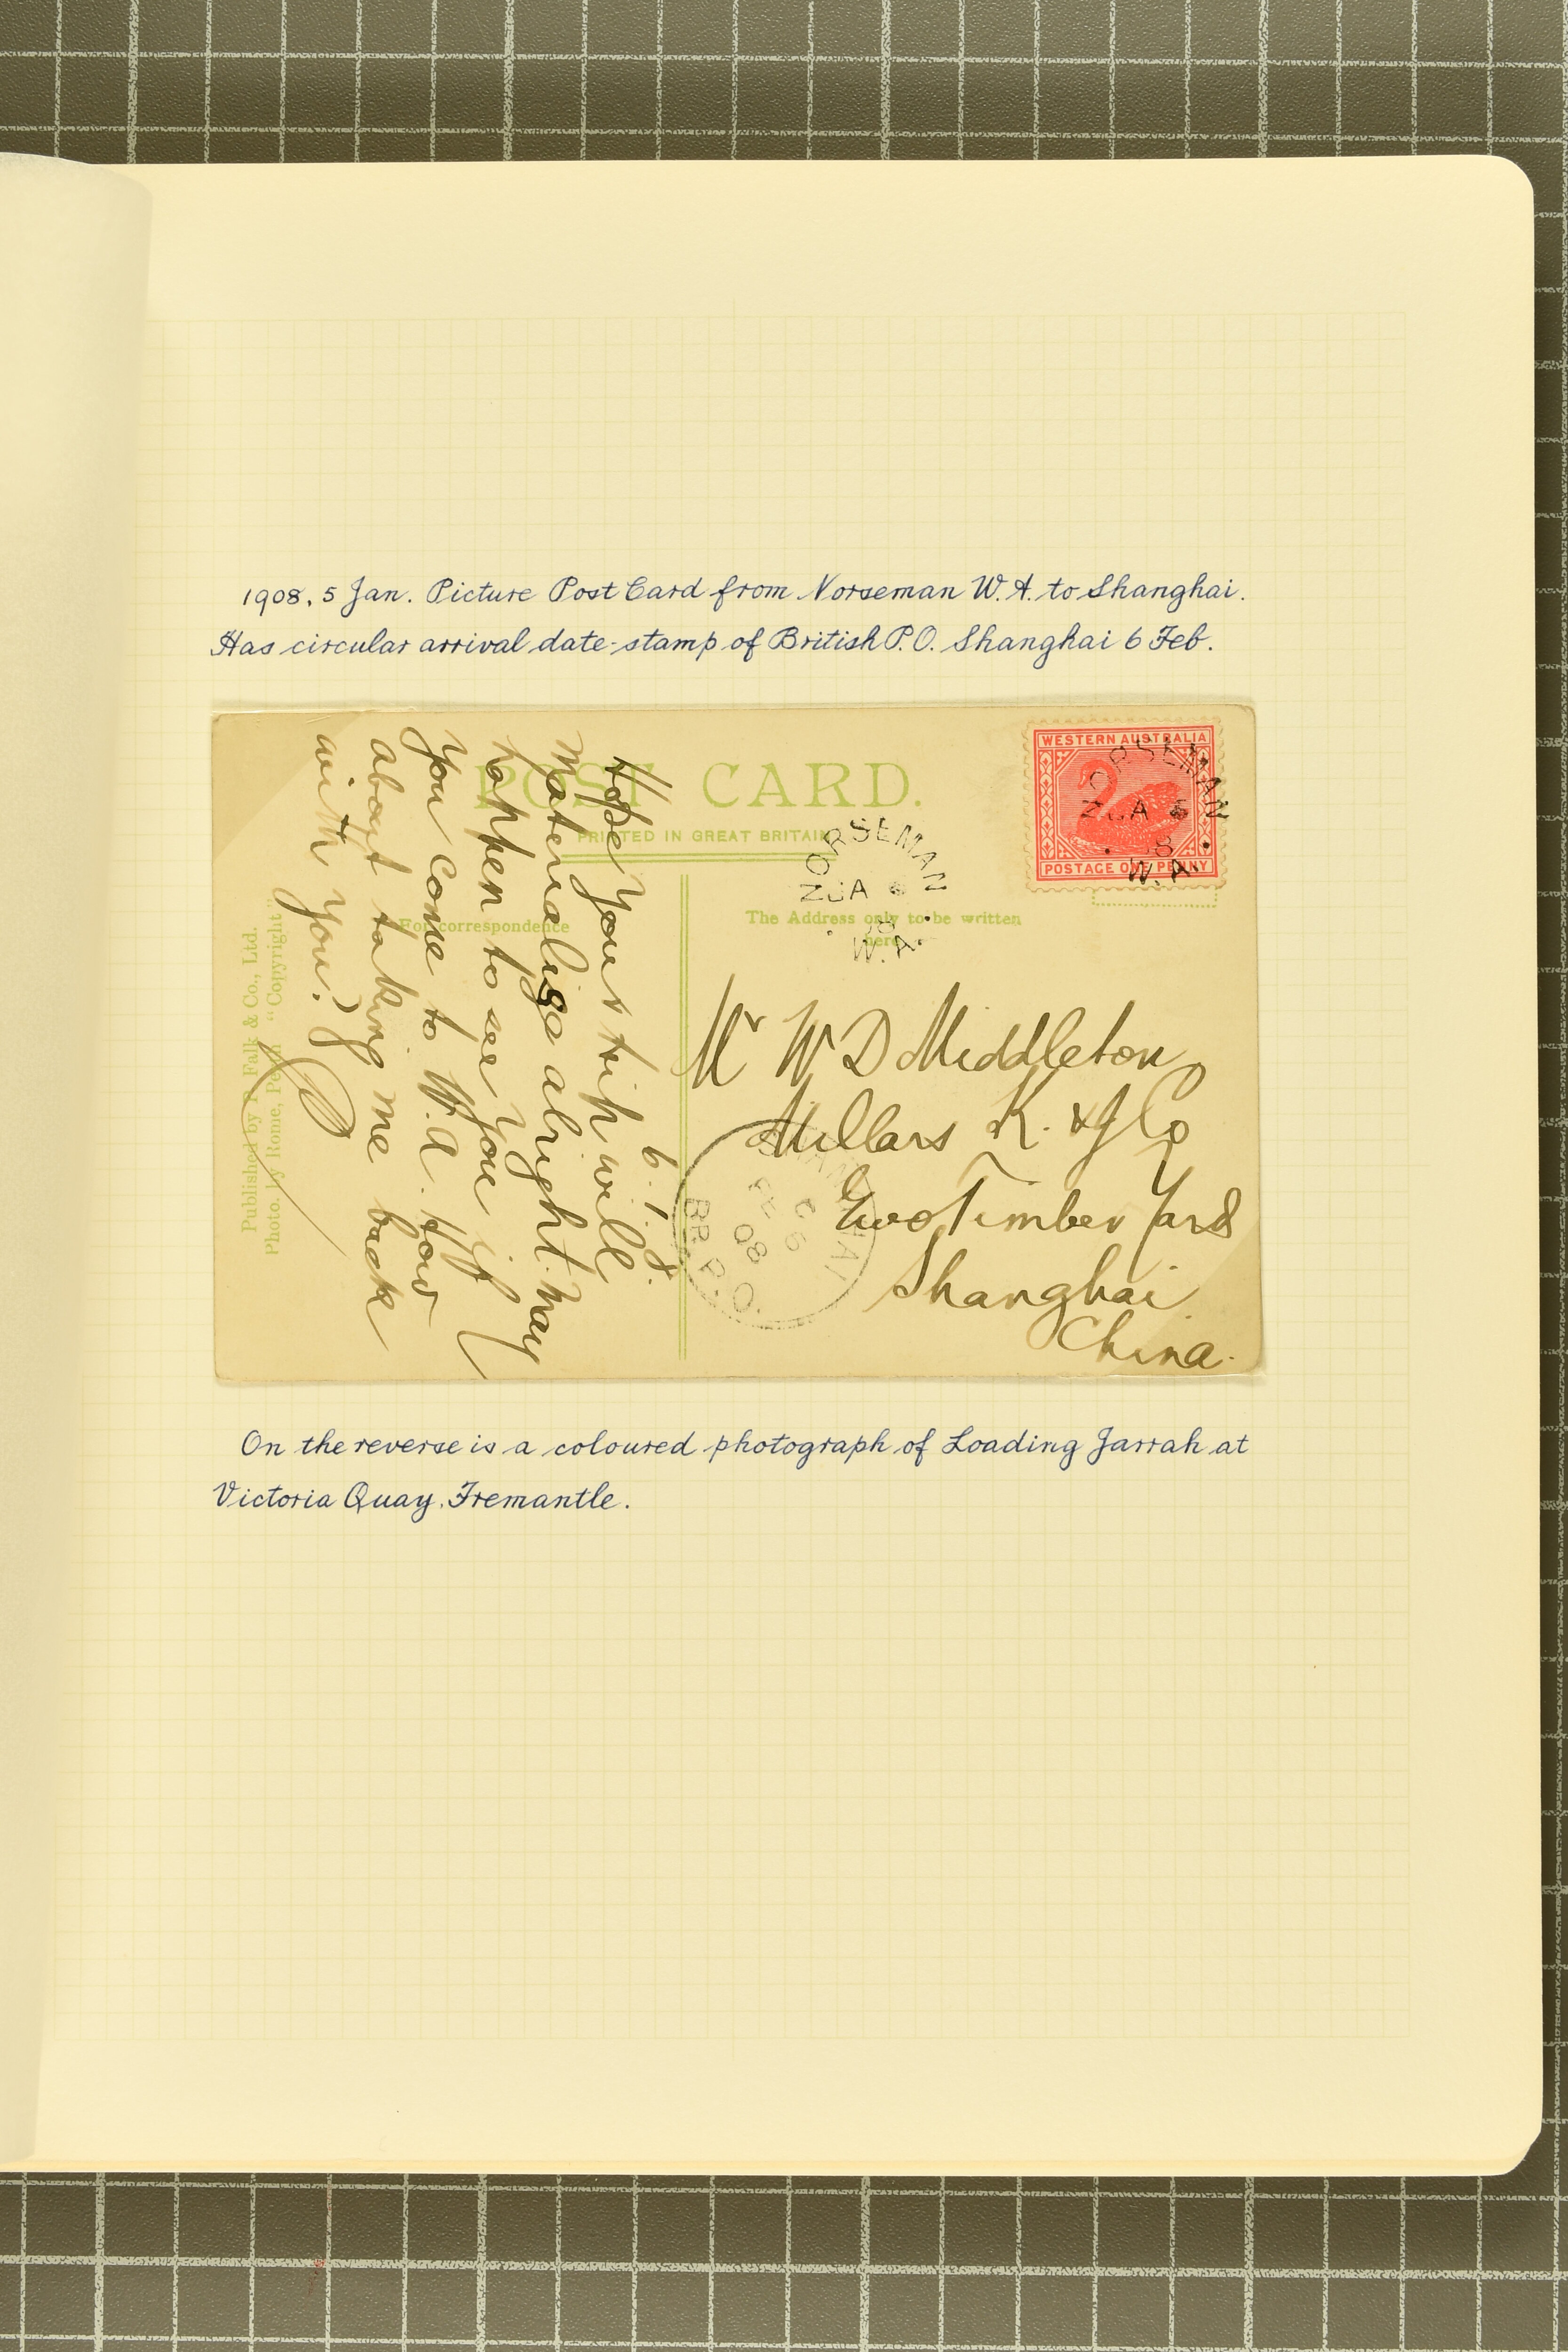 1908. 5 Jan. Picture Post Card from Norseman W.A. to Shanghai.
Has circular arrival date-stamp of British P.O. Shanghai 6 Feb.
POST CARD.
PRINTED IN GREAT BRITAIN
For correspondence
The Address only to be written
here
WESTERN AUSTRALIA
POSTAGE ONE PENNY
NORSEMAN
JA
08
W.A.
NORSEMAN
JA
08
W.A.
6.1.8.
Hope your trip will
materialise alright. May
happen to see you if
you come to W.A. How
about taking me back
with you?
Published by P. Falk & Co., Ltd.
Photo. by Rome, Perth "Copyright"
Mr W D Middleton
Millars K. & J Co
Ewo Timber Yard
Shanghai
China.
SHANGHAI
C
FE 6
08
BR. P.O.
On the reverse is a coloured photograph of Loading Jarrah at
Victoria Quay, Fremantle.